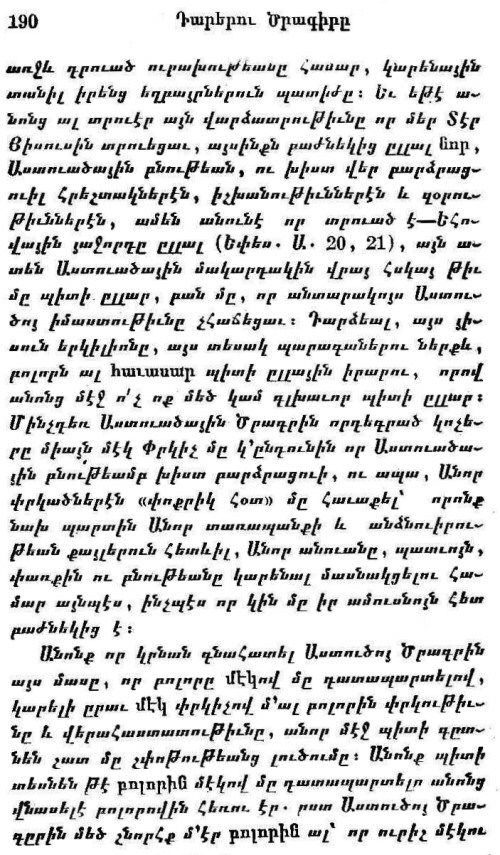 190 Դարերու Ծրագիրը
առջև դրուած ուրախութեանը Համար, կարենային
տանիլ իրենց եղբայրներուն պատիժը։ Եւ եթէ ա-
նոնց ալ տրուէր այն վարձատրութիւնը որ մեր Տէր
Յիսուսին տրուեցաւ, այսինքն բաժնեկից ըլլալ նոր,
Աստուածային բնութեան, ու խիստ վեր բարձրաց-
ուիլ Հրեշտակներէն, իշխանութիւններէն և զօրու-
թիւններէն, ամեն անունէ որ տրուած է—ԵՀո-
վային յաջորդը ըլլալ (Եփես. Ա. 20, 21), այն ա-
տեն Աստուածային մակարդակին վրայ Հսկայ թիւ
մը պիտի ըլլար, բան մը, որ անտարակոյս Աստու-
ծոյ իմաստութիւնը չՀաճեցաւ։ Դարձեալ, այս յի-
սուն երկիլիոնը, այս տեսակ պարագաներու ներքև,
բոլորն ալ հաւասար պիտի ըլլային իրարու, որով
անոնց մէջ ո՛չ ոք մեծ կամ գլխաւոր պիտի ըլլար։
Մինչդեռ Աստուածային Ծրագրին որդեգրած կոչե-
րը միայն մէկ Փրկիչ մը կ՚ընդունին որ Աստուածա-
յին բնութեամբ խիստ բարձրացուի, ու ապա, Անոր
փրկածներէն «փոքրիկ Հօտ» մը Հաւաքել՝ որոնք
նախ պարտին Անոր տառապանքի և անձնուիրու-
թեան քայլերուն Հետևիլ, Անոր անուանը, պատւոյն,
փառքին ու բնութեանը կարենալ մասնակցելու Հա-
մար այնպէս, ինչպէս որ կին մը իր ամուսնոյն Հետ
բաժնեկից է։
Անոնք որ կրնան գնահատել Աստուծոյ Ծրագրին
այս մասը, որ բոլորը մէկով մը դատապարտելով,
կարելի ըրաւ մէկ փրկիչով մ՚ալ բոլորին փրկութիւ-
նը և վերահաստատութիւնը, անոր մէջ պիտի գըտ-
նեն շատ մը շփոթութեանց լուծումը։ Անոնք պիտի
տեսնեն թէ բոլորին մէկով մը դատապարտելո անոնց
վնասելէ բոլորովին Հեռու էր. ըստ Աստուծոյ Ծրա-
գըրին մեծ շնորՀք մ՚էր բոլորին ալ՝ որ ուրիշ մէկու